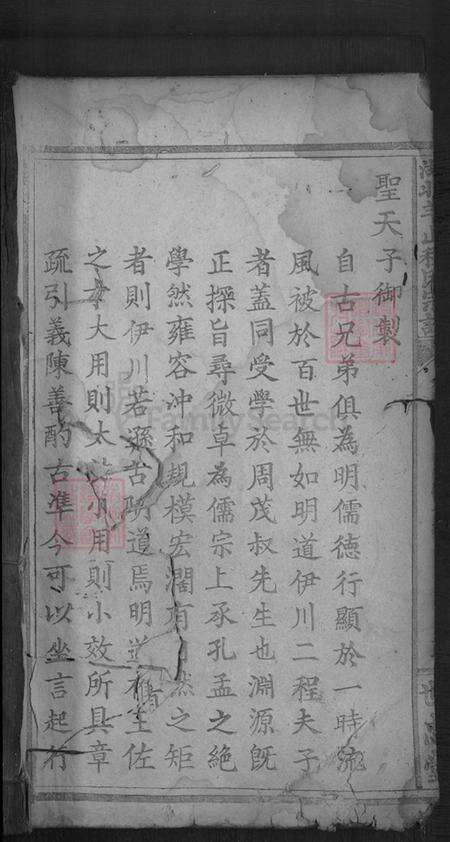 聖天子御製
自古兄弟俱為明儒德行顯於一時流
風被於百世無如明道伊川二程夫子
者蓋同受學於周茂叔先生也淵源旣
正探旨尋微卓為儒宗上承孔孟之絕
學然雍容沖和規模宏濶有自然之矩
者則伊川若遜古明道焉明道有王佐
之才大用則大效小用則小效所具章
疏引義陳善酌古準今可以坐言起行
FamilySearch